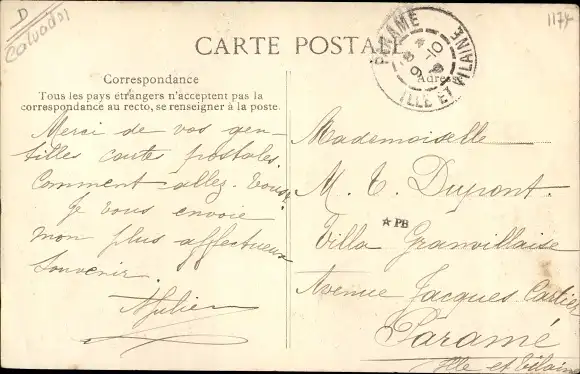 D
Calvados
1174
CARTE POSTALE
PARAMÉ
ILLE ET VILAINE
Correspondance
Adresse
Tous les pays étrangers n'acceptent pas la
correspondance au recto, se renseigner à la poste.
Merci de vos gen-
tilles cartes postales.
Comment allez-vous?
Je vous envoie
mon plus affectueux
souvenir.
Julien
Mademoiselle
M. T. Dupont.
PB
Villa Granvillaise
Avenue Jacques Cartier
Paramé
Ille et Vilaine